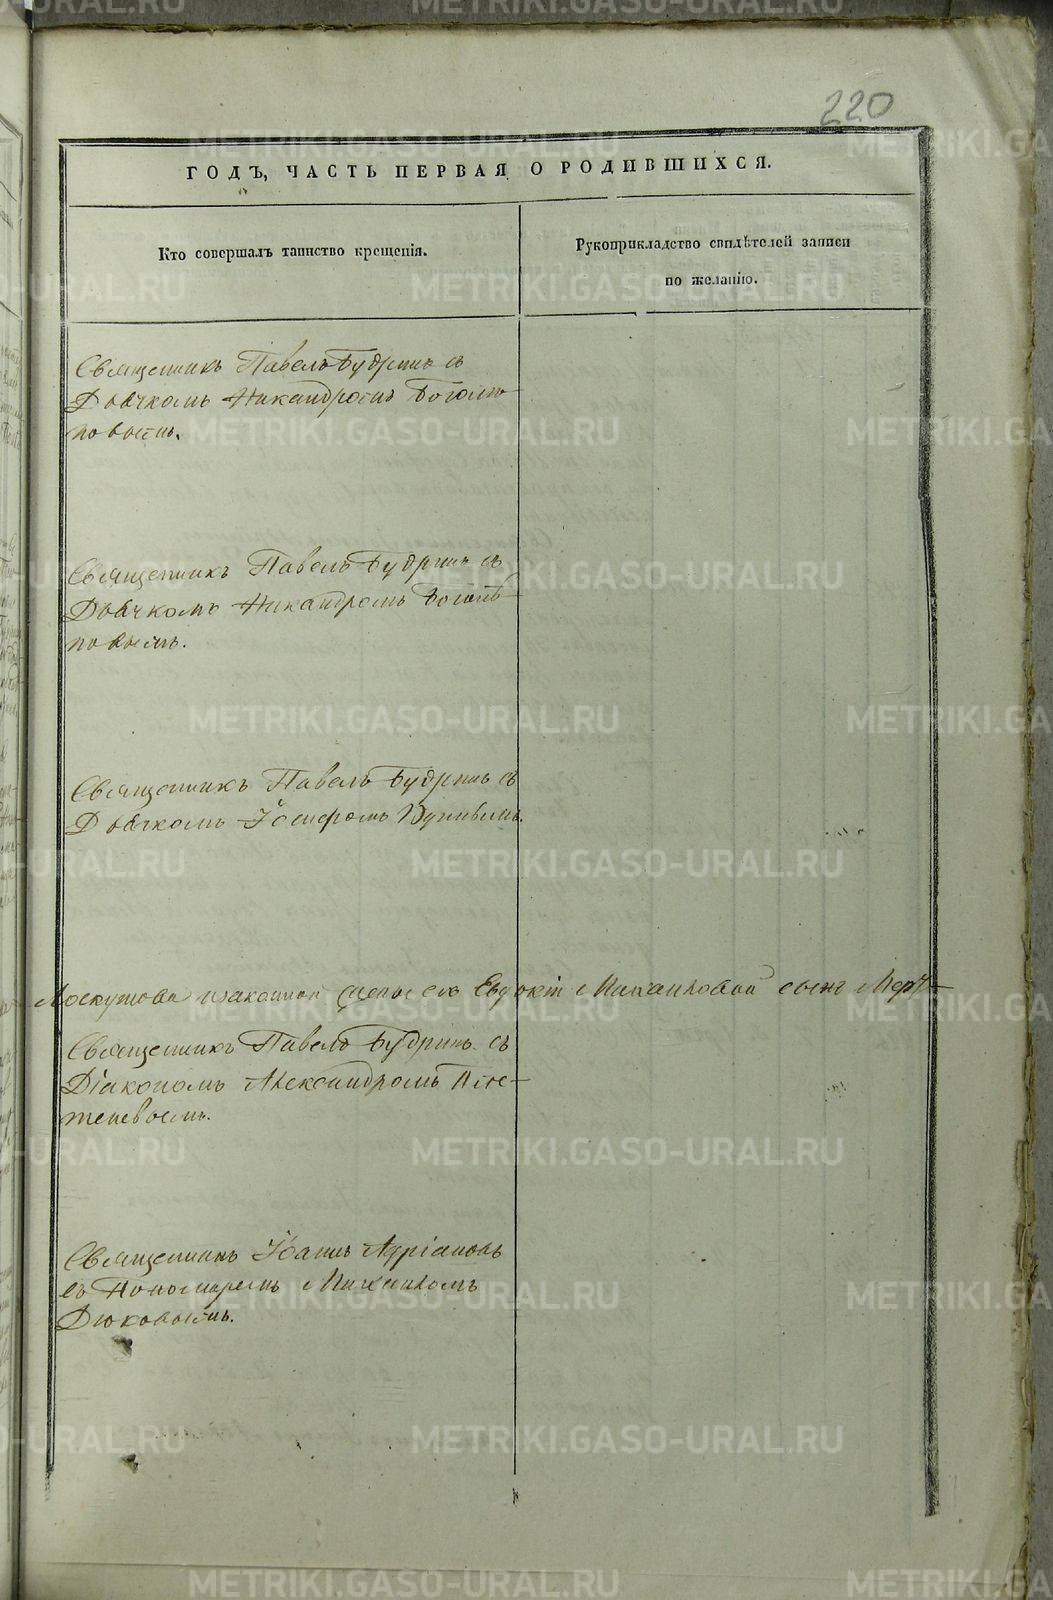 220
ГОДЪ, ЧАСТЬ ПЕРВАЯ О РОДИВШИХСЯ.
Кто совершалъ таинство крещенія.
Рукоприкладство свидѣтелей записи
по желанію.
Священникъ Павелъ Будринъ съ
Дьячкомъ Никандромъ Боголю-
повымъ.
Священникъ Павелъ Будринъ съ
Дьячкомъ Никандромъ Боголю-
повымъ.
Священникъ Павелъ Будринъ съ
Дьячкомъ Іосифомъ
законной его Евдокіи Михайловой сынъ
Священникъ Павелъ Будринъ съ
Діакономъ Александромъ Пле-
теневымъ.
Священникъ Іоаннъ Адріановъ
съ Пономаремъ Михаиломъ
Дюковымъ.
METRIKI.GASO-URAL.RU